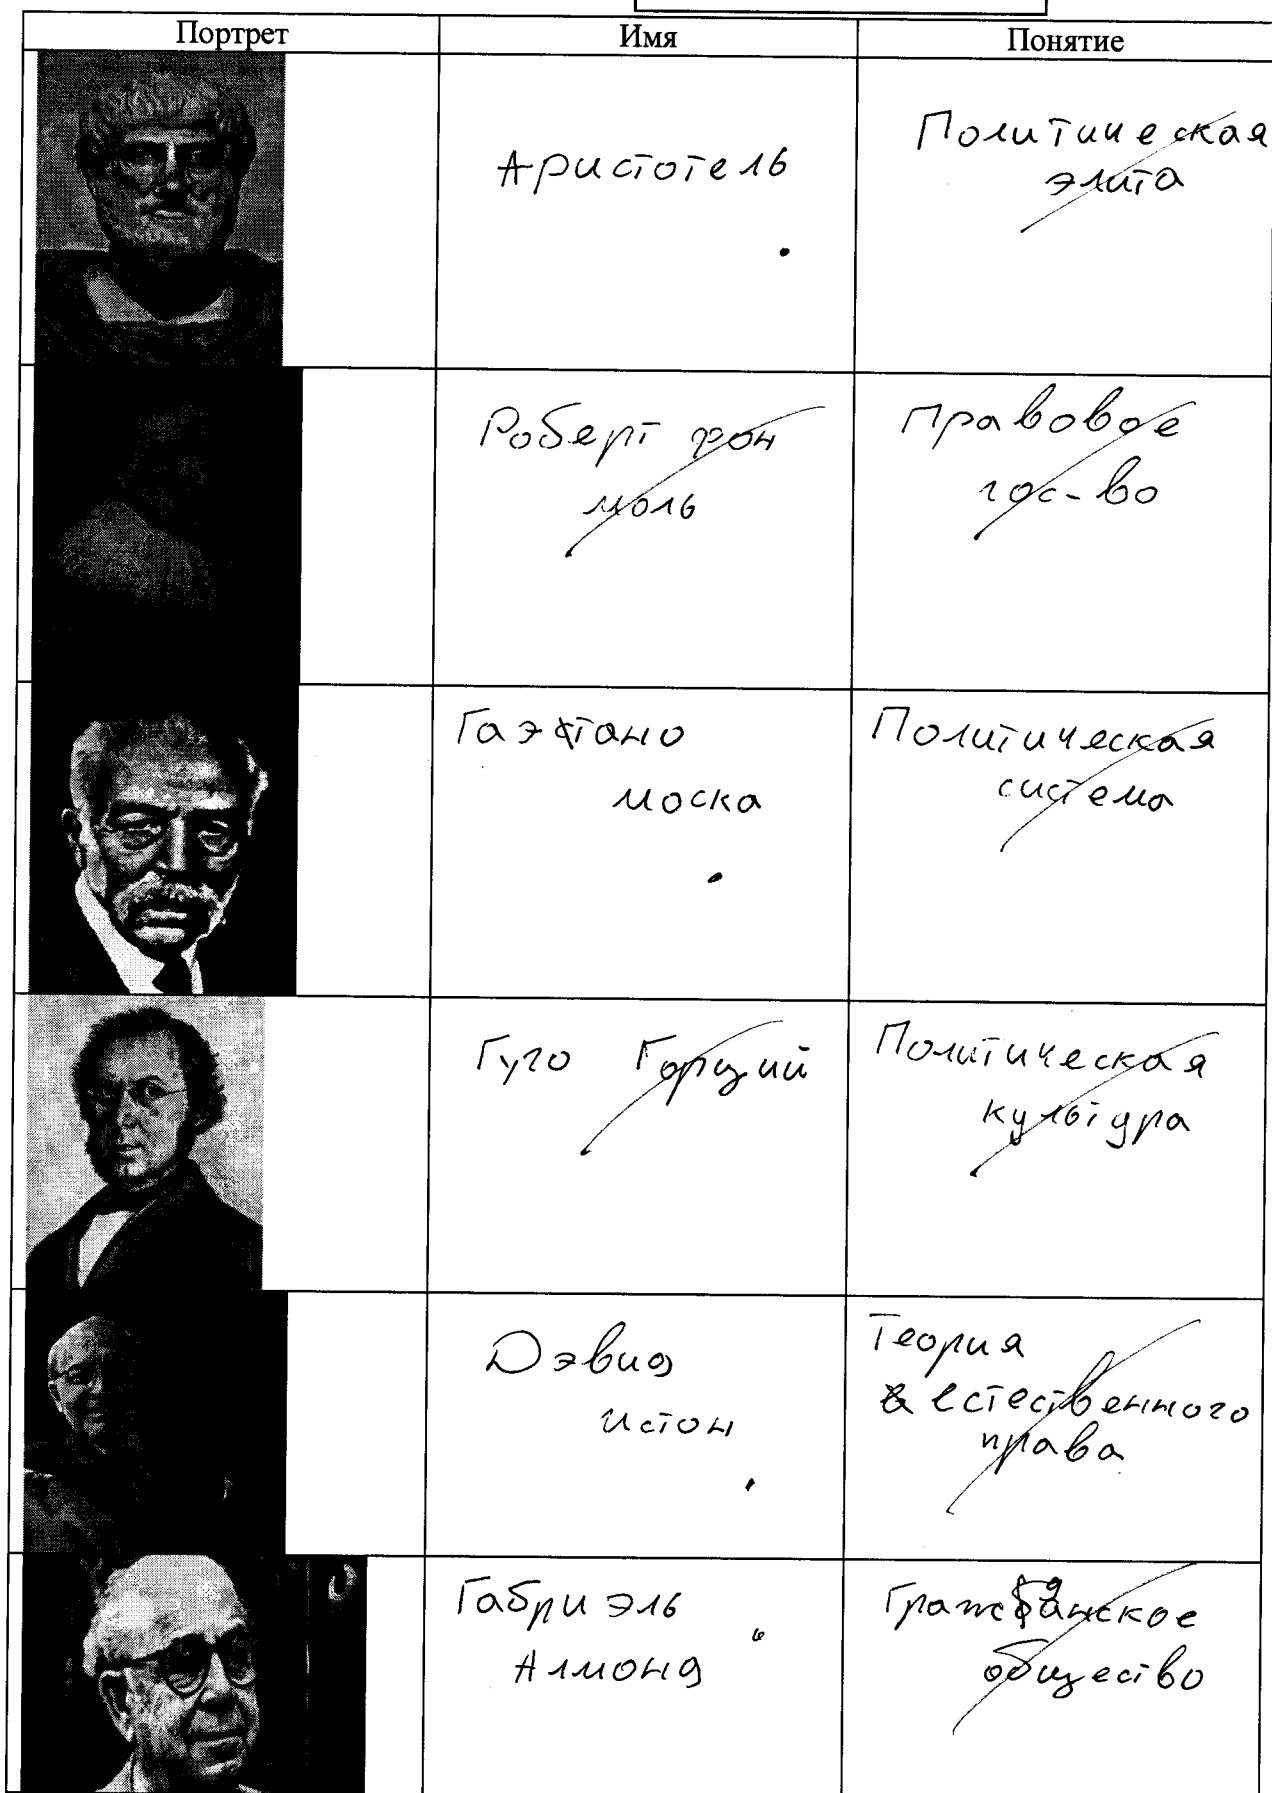 Портрет Имя Понятие
Аристотель
Политическая
элита
Роберт фон
моль
правовое
гос-во
Гаэтано
моска
Политическая
система
Гуго Горций
Политическая
культура
Дэвид
истон
Теория
естественного
права
Габриэль
Алмонд
Гражданское
общество